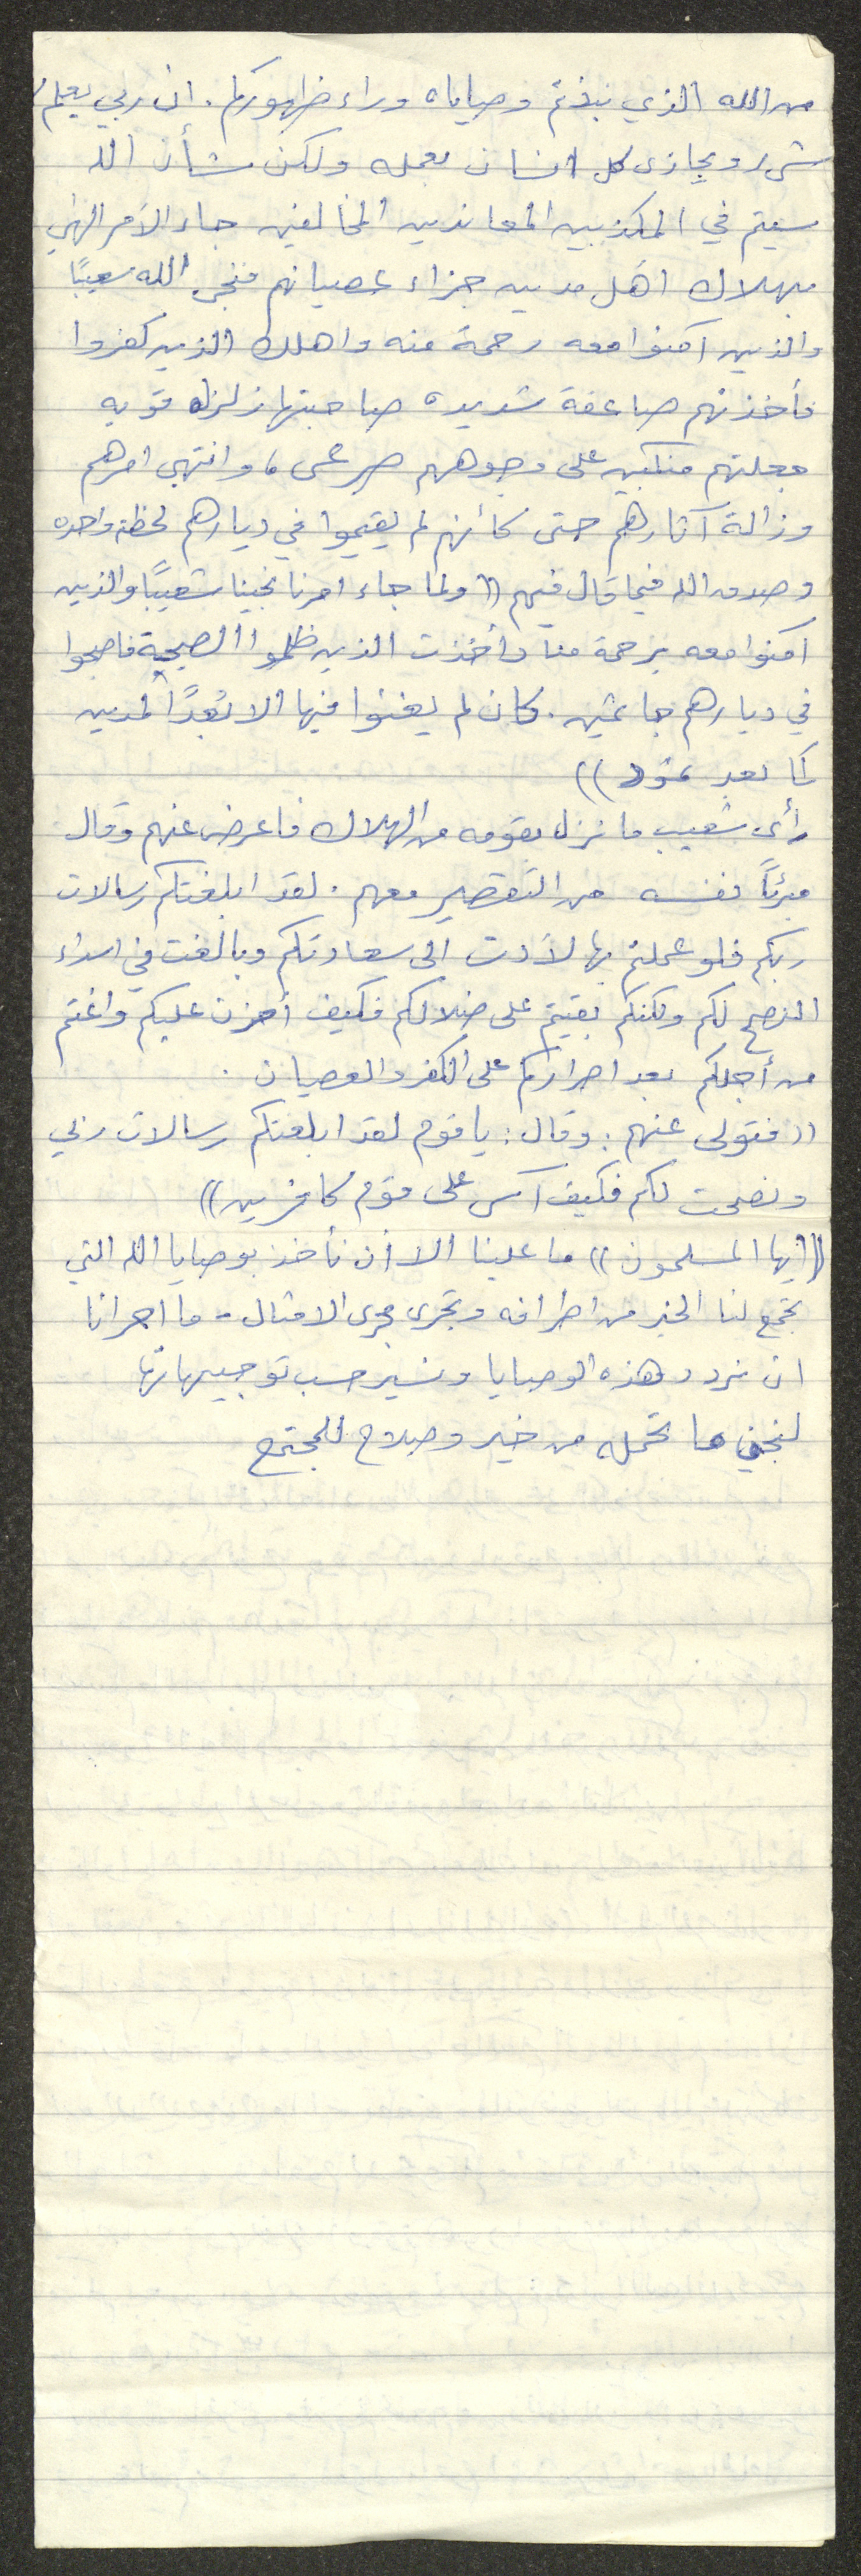 من الله الذي نبذتم وصاياه وراء ظهوركم. ان ربي يعلم
شيء ويجازى كل انسان بعمله ولكن شأن الله
سيتم في المكذبين المعاندين المخالفين جاء الأمر الهي
بهلاك اهل مدين جزاء عصيانهم فنجى الله شعيبًا
والذين آمنوا معه رحمة منه واهلك الذين كفروا
فأخذتهم صاعقة شديده صاحبتها زلزله قويه
جعلتهم منكبين على وجوههم صرعى، وانتهى امرهم
وزالة آثارهم حتى كأنهم لم يقيموا في ديارهم لحظة واحده
وصدق الله فيما قال فيهم ((ولما جاء امرنا نجينا شعيبًا والذين
امنوا معه برحمة منا وأخذت الذين ظلموا الصيحة فاصبحوا
في ديارهم جاثمين. كان لم يغنوا فيها الا بُعدًا لمدين
كما بعد ثمود))
رأى شعيب ما نزل بقومه من الهلاك فاعرض عنهم وقال
مبرئًا نفسه من التقصير معهم. لقد ابلغتكم رسالات
ربكم فلو عملتم بها لأدت الى سعادتكم وبالغت في اسداء
النصح لكم ولكنكم بقيتم على ضلالكم فكيف أحزن عليكم واغتم
من أجلكم بعد اصراركم على الكفر والعصيان.
((فتولى عنهم: وقال: يا قوم لقد ابلغتكم رسالات ربي
ونصحت لكم فكيف آسى على قوم كافرين))
((ايها المسلمون)) ما علينا الا أن نأخذ بوصايا الله التي
تجمع لنا الخير من اطرافه وتجرى مجرى الامثال - ما احرانا
ان نردد هذه الوصايا ونسير حسب توجيهاتها
لنجني ما تحمله من خير وصلاح للمجتمع